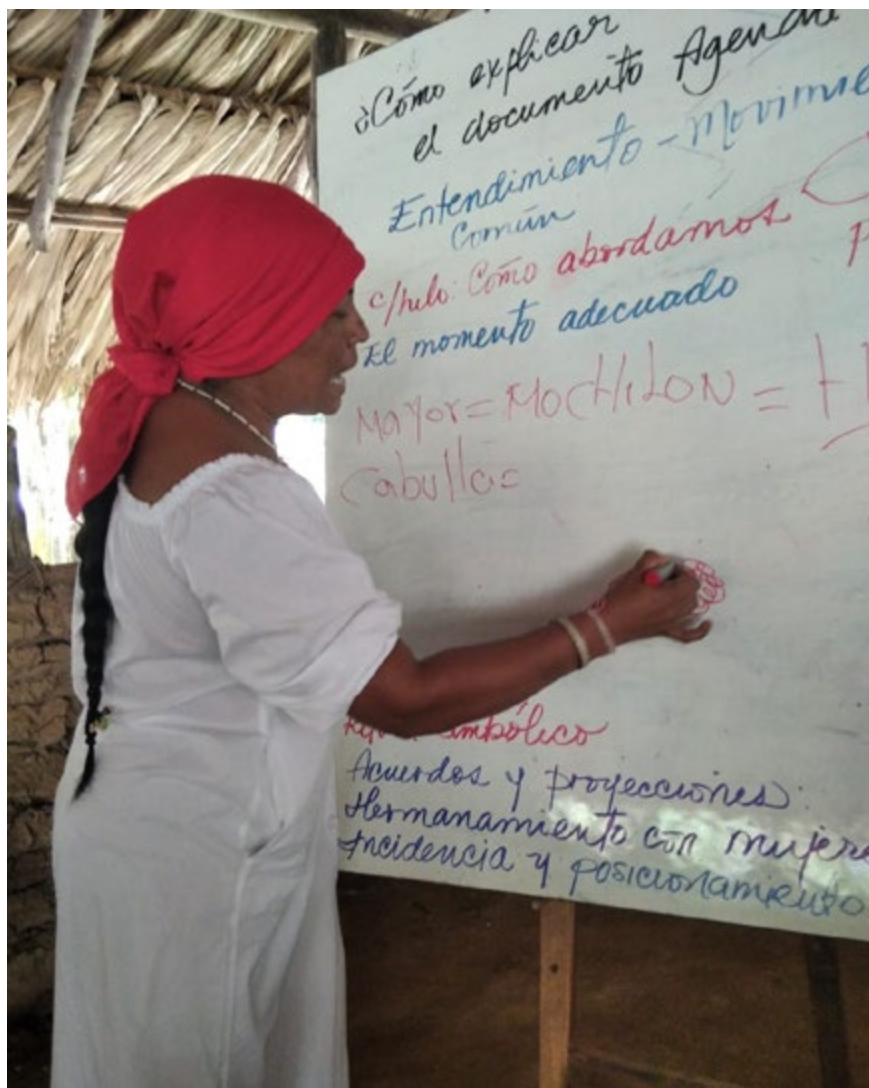 ¿Cómo explicar
el documento Agenda
Entendimiento - Movimie
Común
c/hilo: Cómo abordamos
El momento adecuado
Mayor = MOCHILON =
Cabulla =
simbólico
Acuerdos y proyecciones:
Hermanamiento con mujere
Incidencia y posicionamiento